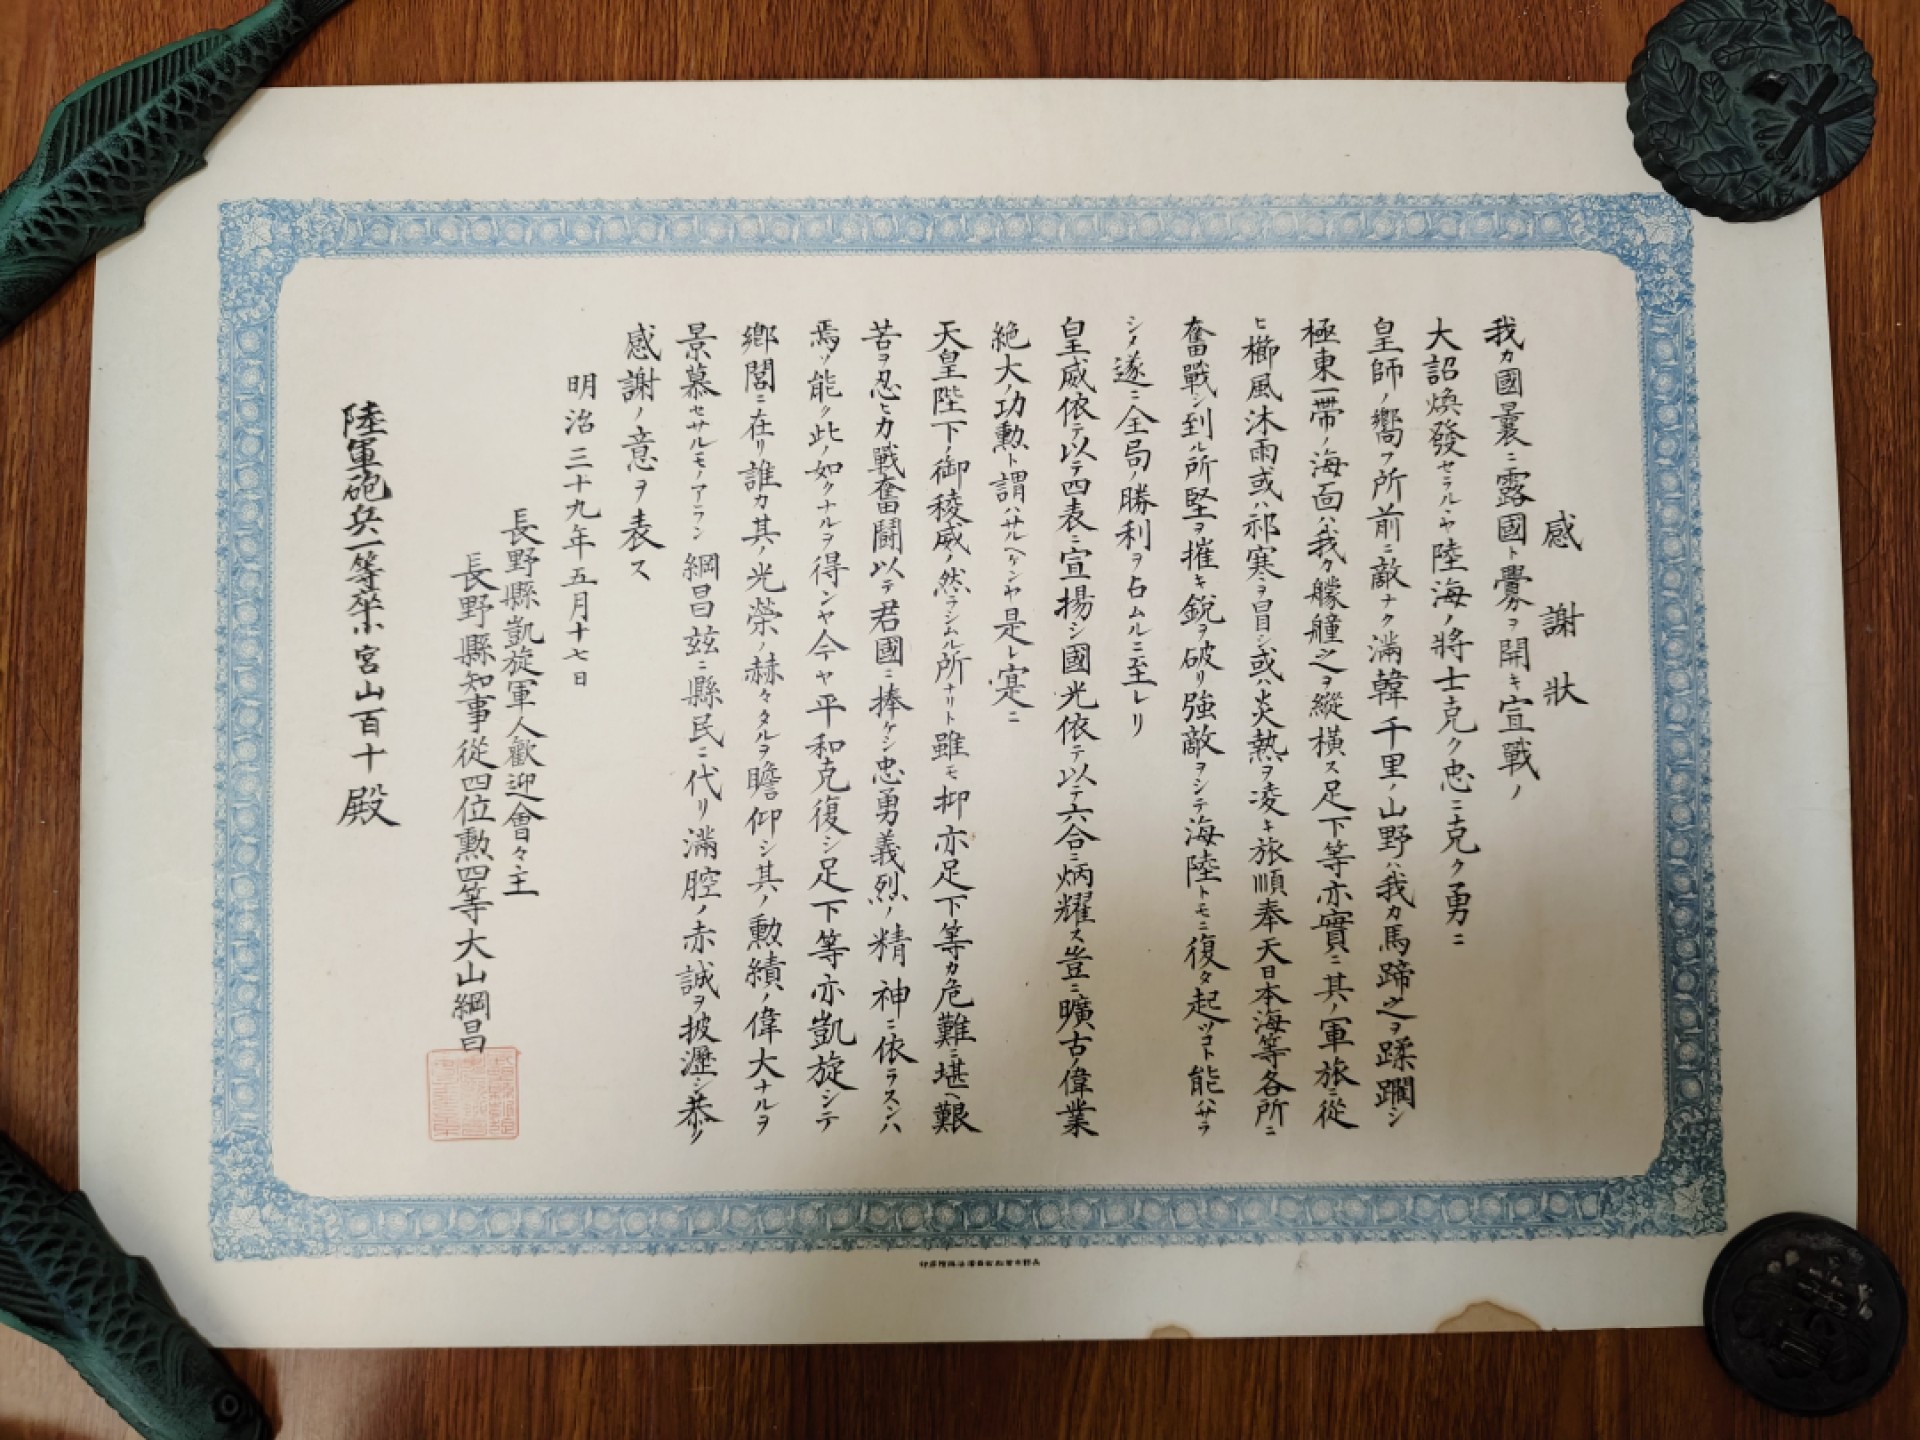 感謝狀
我カ國曩ニ露國ト釁ヲ開キ宣戰ノ
大詔煥發セラルヽヤ陸海ノ將士克ク忠ニ克ク勇ニ
皇師ノ嚮フ所前ニ敵ナク滿韓千里ノ山野ハ我カ馬蹄之ヲ蹂躙シ
極東一帶ノ海面ハ我カ艨艟之ヲ縱橫ス足下等亦實ニ其ノ軍旅ニ從
ヒ櫛風沐雨或ハ祁寒ヲ冒シ或ハ炎熱ヲ凌キ旅順奉天日本海等各所ニ
奮戰シ到ル所堅ヲ摧キ銳ヲ破リ強敵ヲシテ海陸トモニ復タ起ツコト能ハサラ
シメ遂ニ全局ノ勝利ヲ占ムルニ至レリ
皇威依テ以テ四表ニ宣揚シ國光依テ以テ六合ニ炳耀ス豈ニ曠古ノ偉業
絶大ノ功勳ト謂ハサルヘケンヤ是レ寔ニ
天皇陛下ノ御稜威ノ然ラシムル所ナリト雖モ抑亦足下等カ危難ニ堪ヘ艱
苦ヲ忍ヒ力戰奮鬪以テ君國ニ捧ケシ忠勇義烈ノ精神ニ依ラスンハ
焉ソ能ク此ノ如クナルヲ得ンヤ今ヤ平和克復シ足下等亦凱旋シテ
鄉閭ニ在リ誰カ其ノ光榮ノ赫々タルヲ瞻仰シ其ノ勳績ノ偉大ナルヲ
景慕セサルモノアラン綱昌玆ニ縣民ニ代リ滿腔ノ赤誠ヲ披瀝シ恭シク
感謝ノ意ヲ表ス
明治三十九年五月十七日
長野縣凱旋軍人歡迎會々主
長野縣知事從四位勲四等大山綱昌
陸軍砲兵一等卒小宮山百十殿